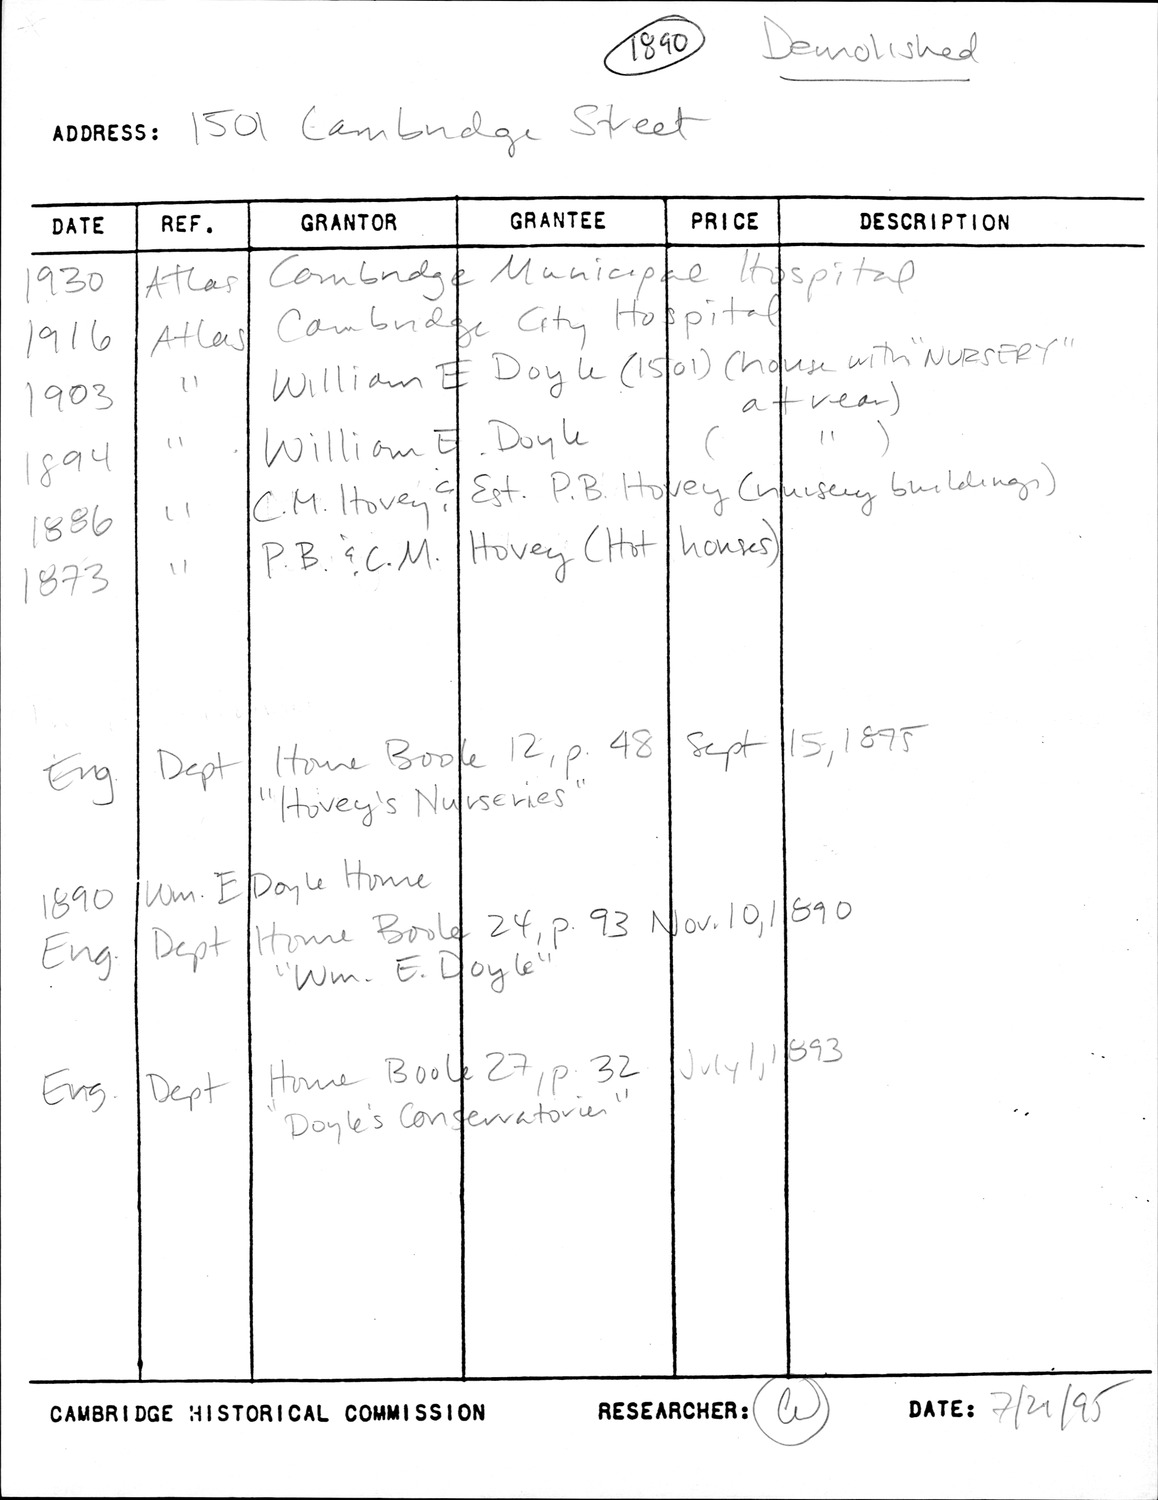 1890 Demolished
ADDRESS: 1501 Cambridge Street
DATE REF. GRANTOR GRANTEE PRICE DESCRIPTION
1930 Atlas Cambridge Municipal Hospital
1916 Atlas Cambridge City Hospital
1903 " William E Doyle (1501) (house with "NURSERY"
at rear)
1894 " William E. Doyle ( " )
1886 " C.M. Hovey & Est. P.B. Hovey (nursery buildings)
1873 " P.B. & C.M. Hovey (Hot houses)
Eng. Dept Home Book 12, p. 48 Sept 15, 1875
"Hovey's Nurseries"
1890 Wm. E Doyle Home
Eng. Dept Home Book 24, p. 93 Nov. 10, 1890
"Wm. E. Doyle"
Eng. Dept Home Book 27, p. 32 July 1, 1893
"Doyle's Conservatories"
CAMBRIDGE HISTORICAL COMMISSION RESEARCHER: DATE: 7/21/95